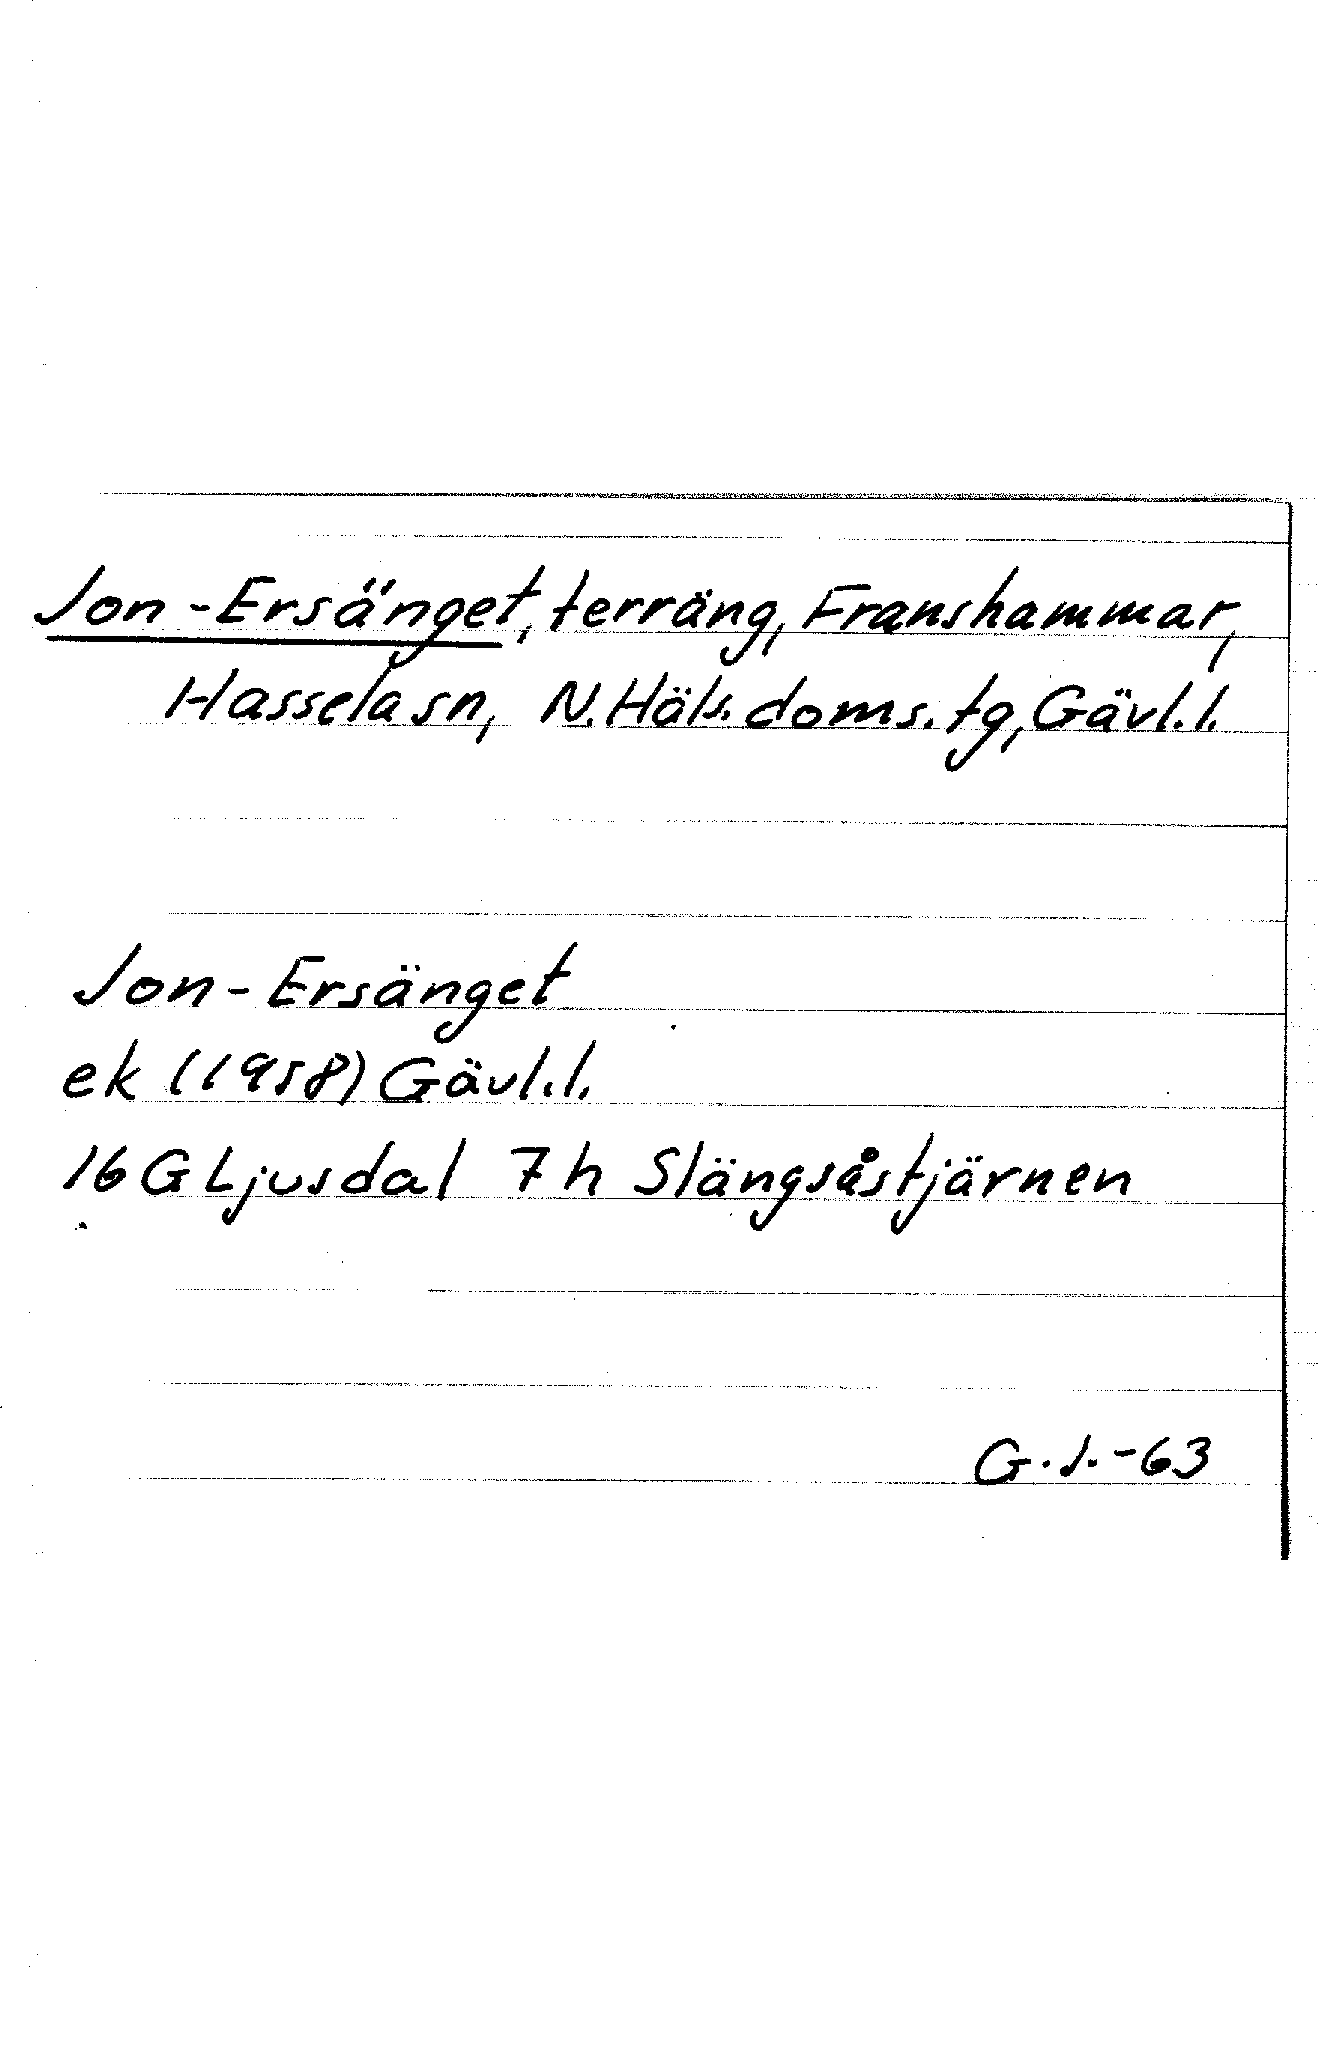 Jon-Ersänget, terräng, Franshammar,
Hassela sn, N. Häls. doms. tg, Gävl. l.
Jon-Ersänget
ek (1958) Gävl. l.
16 G Ljusdal 7 h Slängsåstjärnen
G. J. -63